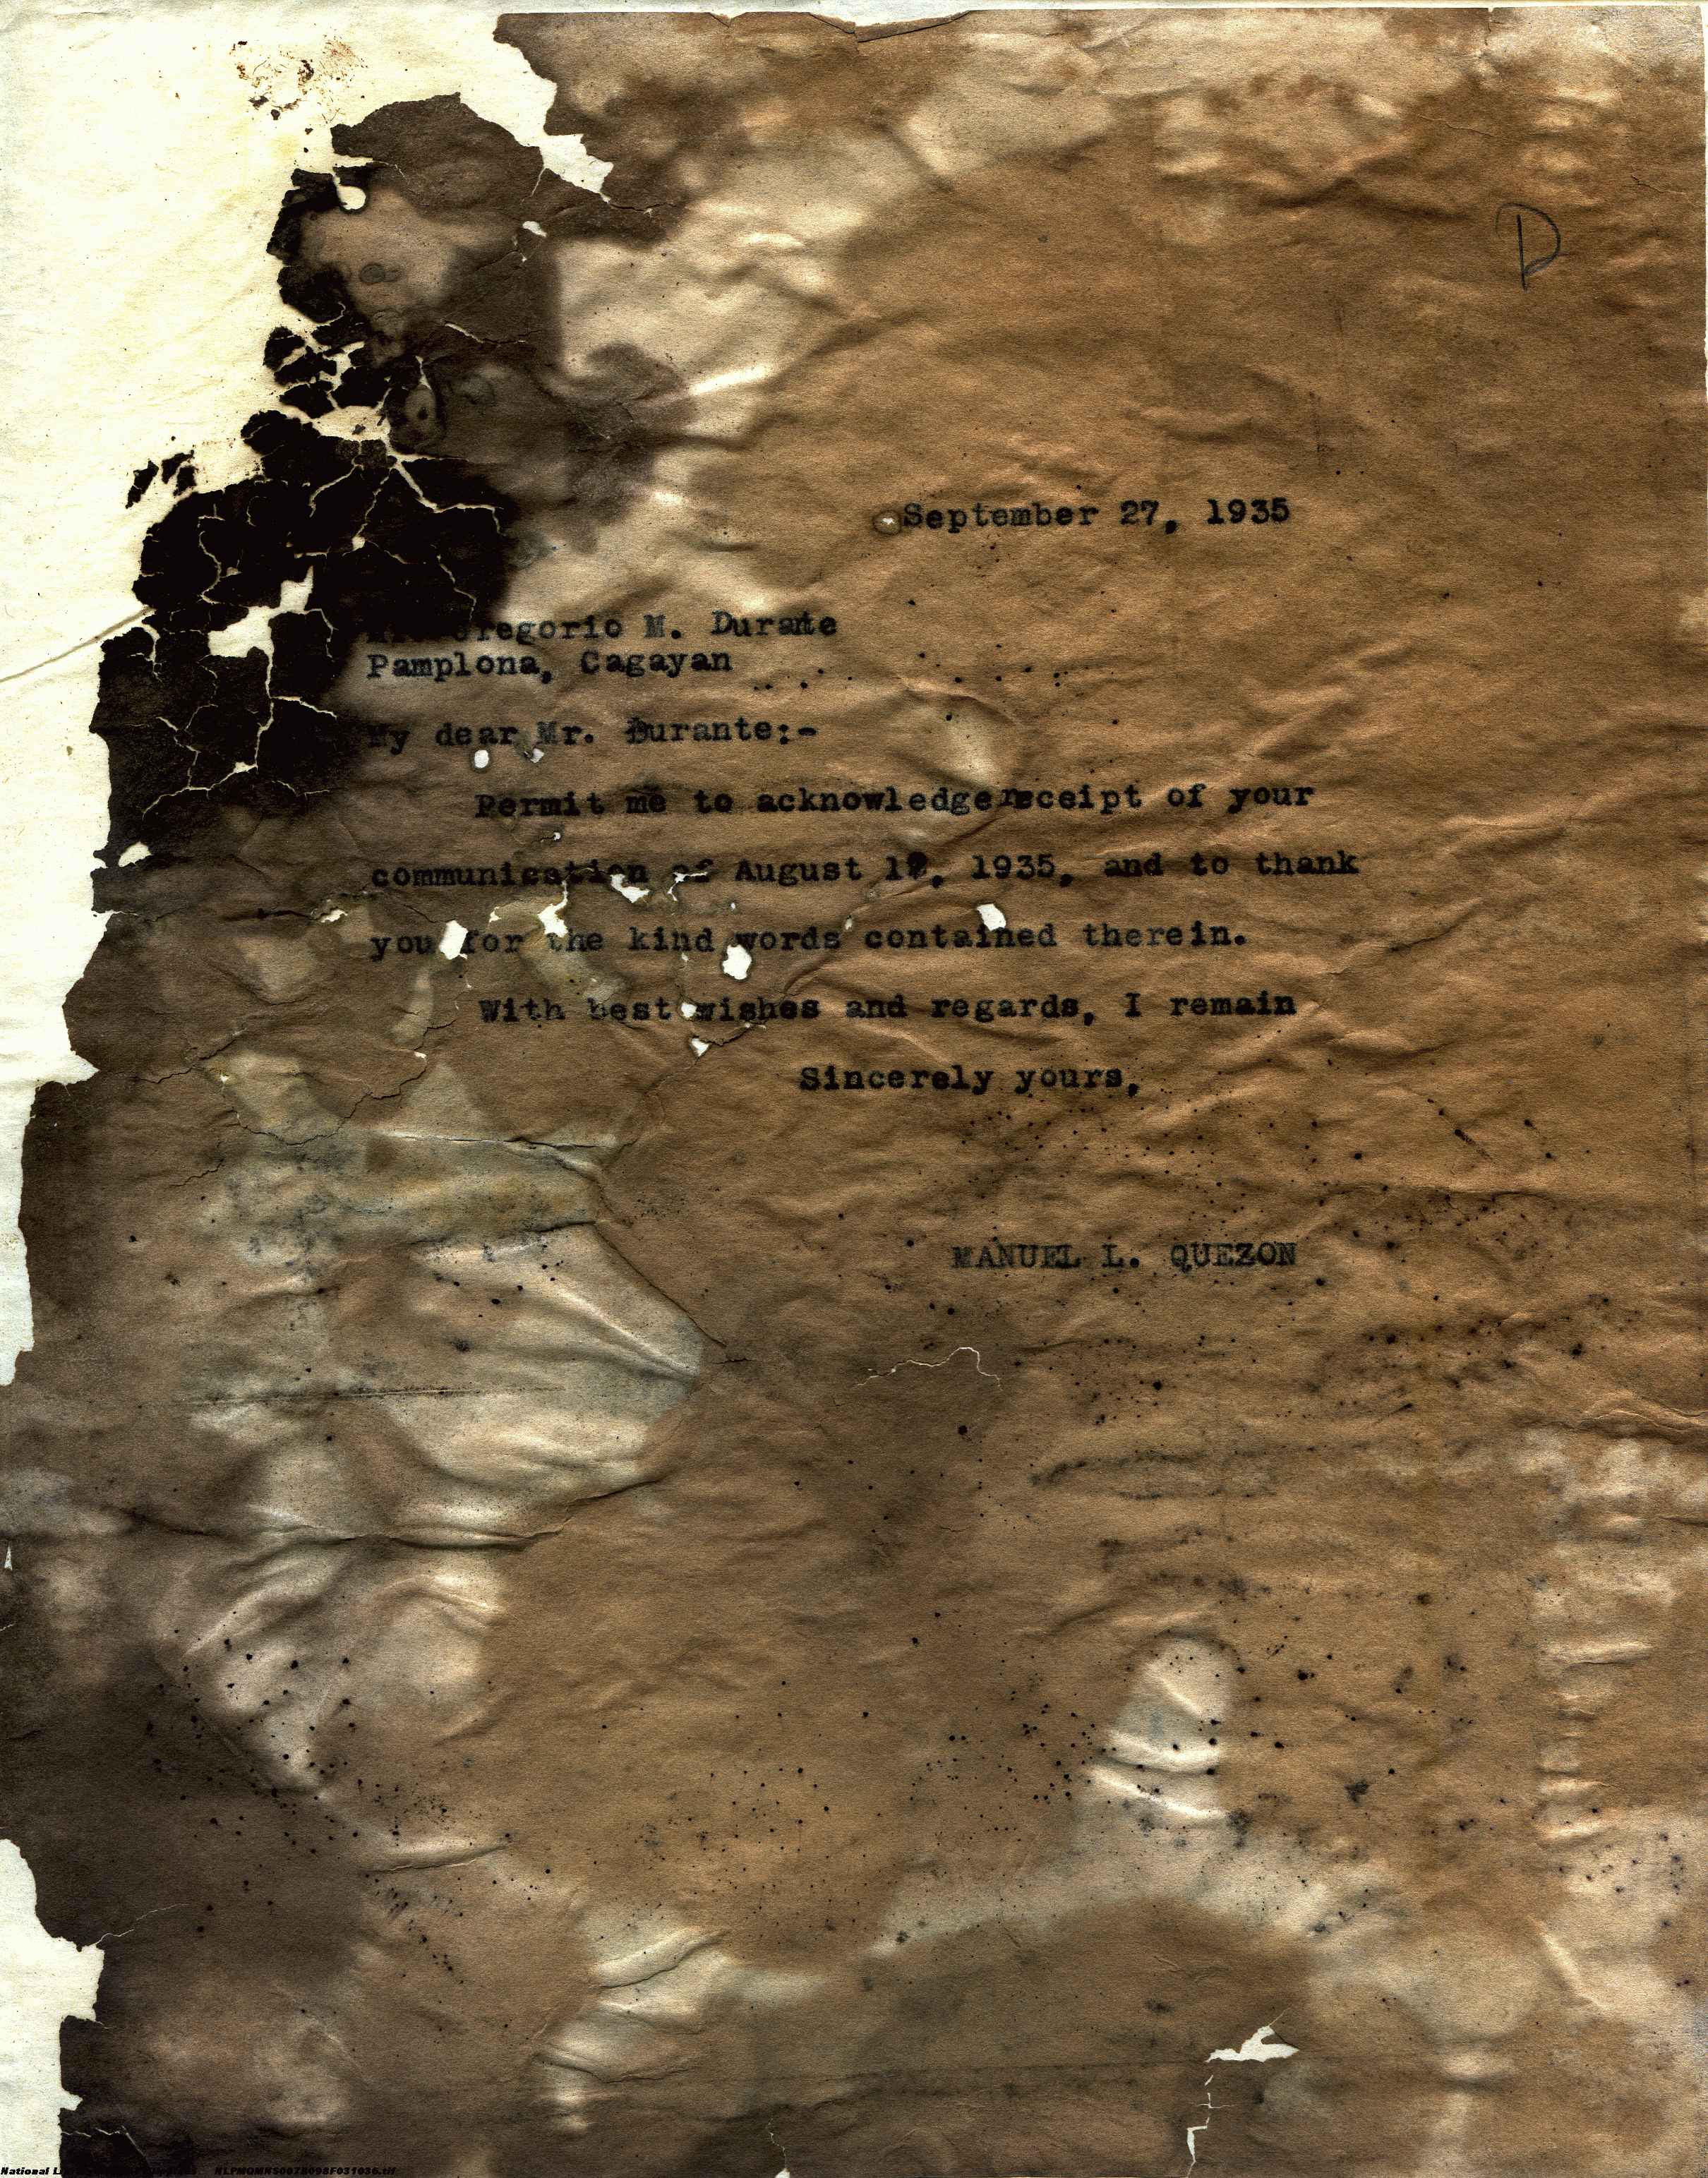 D
September 27, 1935
Gregorio M. Durante
Pamplona, Cagayan
My dear Mr. Durante:-
Permit me to acknowledge receipt of your
communication of August 1, 1935, and to thank
you for the kind words contained therein.
With best wishes and regards, I remain
Sincerely yours,
MANUEL L. QUEZON
National